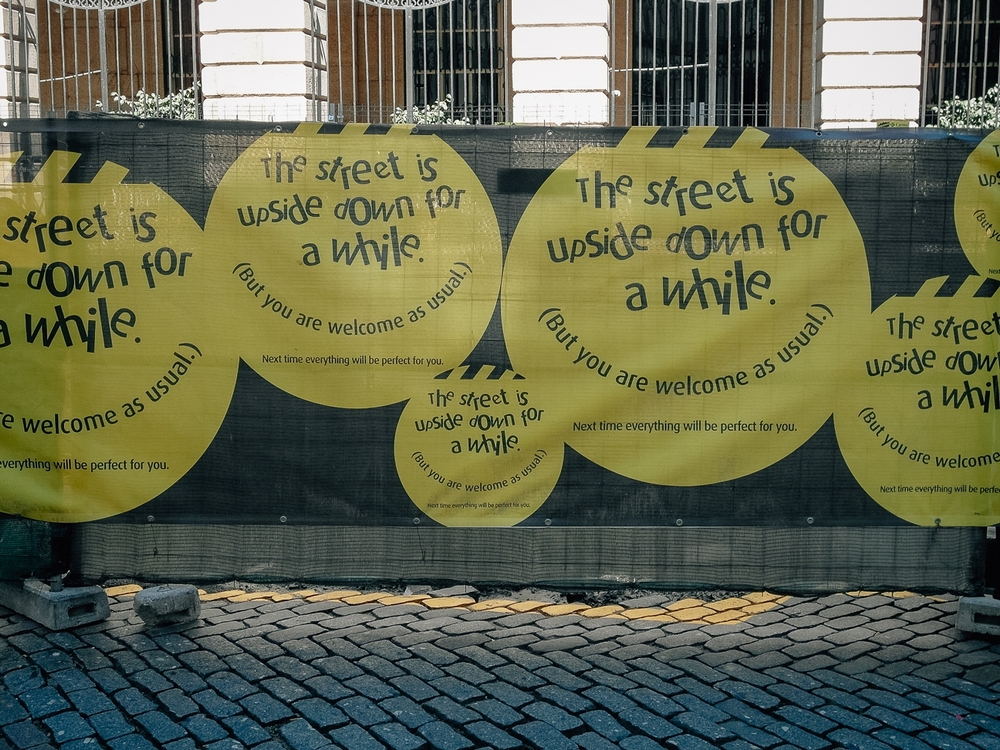 street is
down for
a while.
are welcome as usual.)
everything will be perfect for you.
The street is
upside down for
a while.
(But you are welcome as usual.)
Next time everything will be perfect for you.
The street is
upside down for
a while.
(But you are welcome as usual.)
Next time everything will be perfect for you.
The street is
upside down for
a while.
(But you are welcome as usual.)
Next time everything will be perfect for you.
The street
upside down
a while
(But you are welcome
Next time everything will be